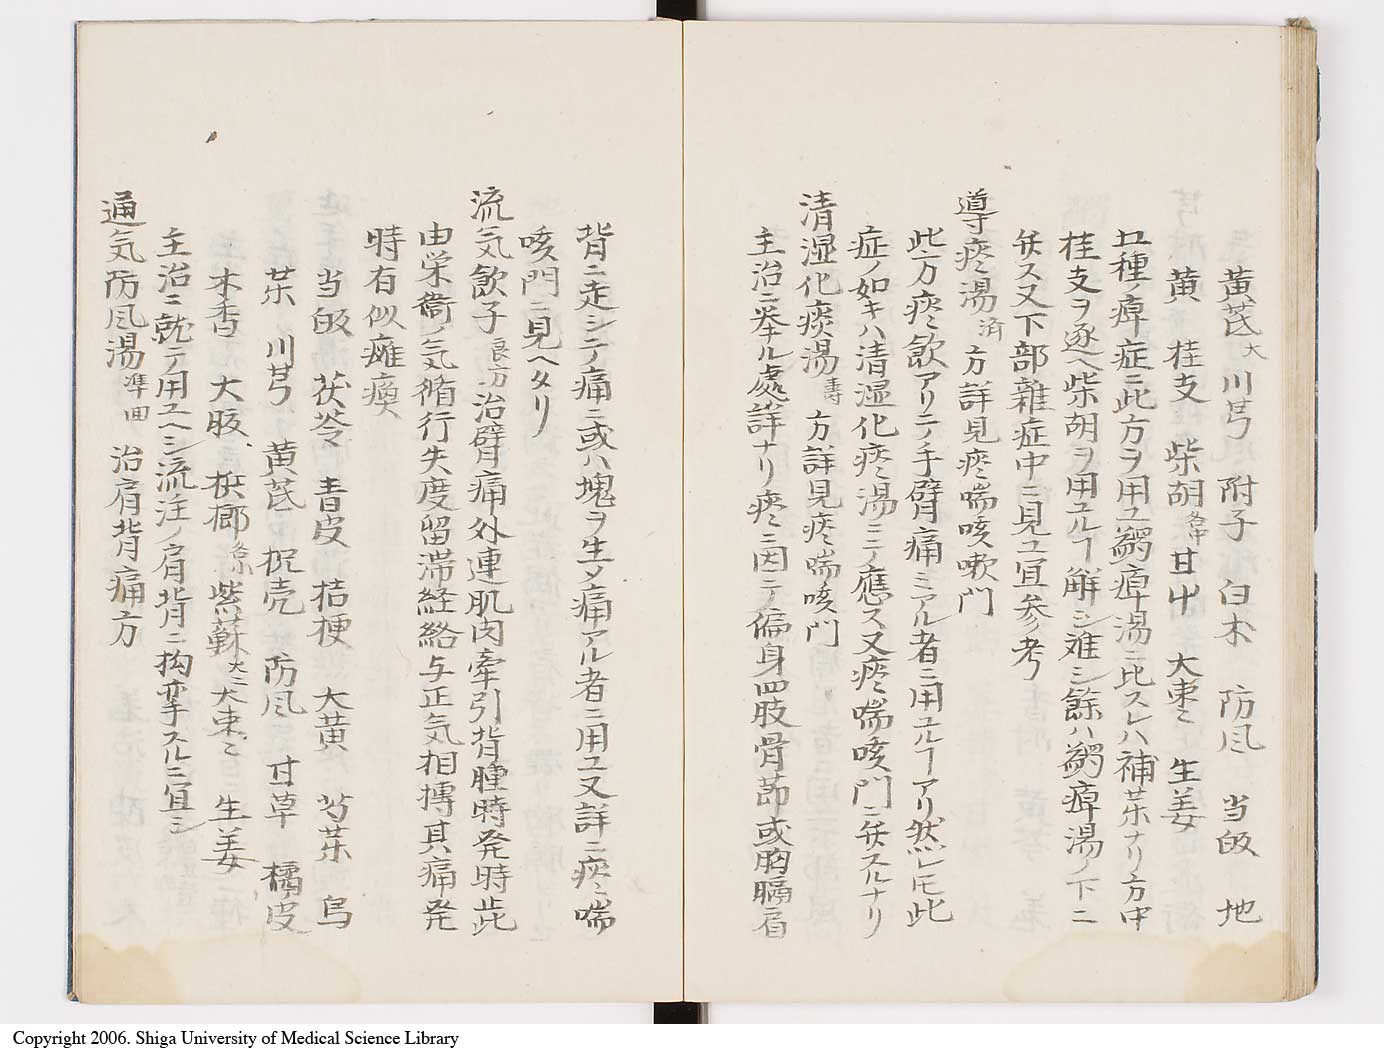 黄芪大 川芎 附子 白朮 防风 当皈 地
黄 桂支 柴胡各中 甘中 大枣ミ 生姜
五種ノ痺症ニ此方ヲ用ユ蠲痺湯ニ比スレハ補茱ナリ方中
桂支ヲ逐ヘ柴胡ヲ用ユルヿ解シ难シ餘ハ蠲痺湯ノ下ニ
弁ス又下部雜症中ニ見ユ宜参考
導痰湯済 方詳見痰喘咳嗽门
此方痰飲アリテ手臂痛ミアル者ニ用ユルヿアリ然レ𪜈此
症ノ如キハ清湿化痰湯ミニテ應ス又痰喘咳門ニ弁スルナリ
清湿化痰湯壽 方詳見痰喘咳门
主治ニ挙ル處詳ナリ痰ニ因テ偏身四肢骨節或胸膈肩
背ニ走シテ痛ニ或ハ塊ヲ生メ痛アル者ニ用ユ又詳ニ痰喘
咳門ニ見ヘタリ
流気飲子良方 治臂痛外連肌肉牽引背腫時発時止此
由栄衛ノ気循行失度留滞経絡与正気相搏其痛発
時有似癱瘓
当皈 茯苓 青皮 桔梗 大黄 芍茱 烏
茱 川芎 黄芪 枳壳 防风 甘草 橘皮
木香 大腹 梹榔各小 紫蘇大 大枣ミ 生姜
主治ニ就テ用ユヘシ流注ノ肩背ニ拘挛スルニ宜シ
通気防风湯準四 治肩背痛方
Copyright 2006. Shiga University of Medical Science Library